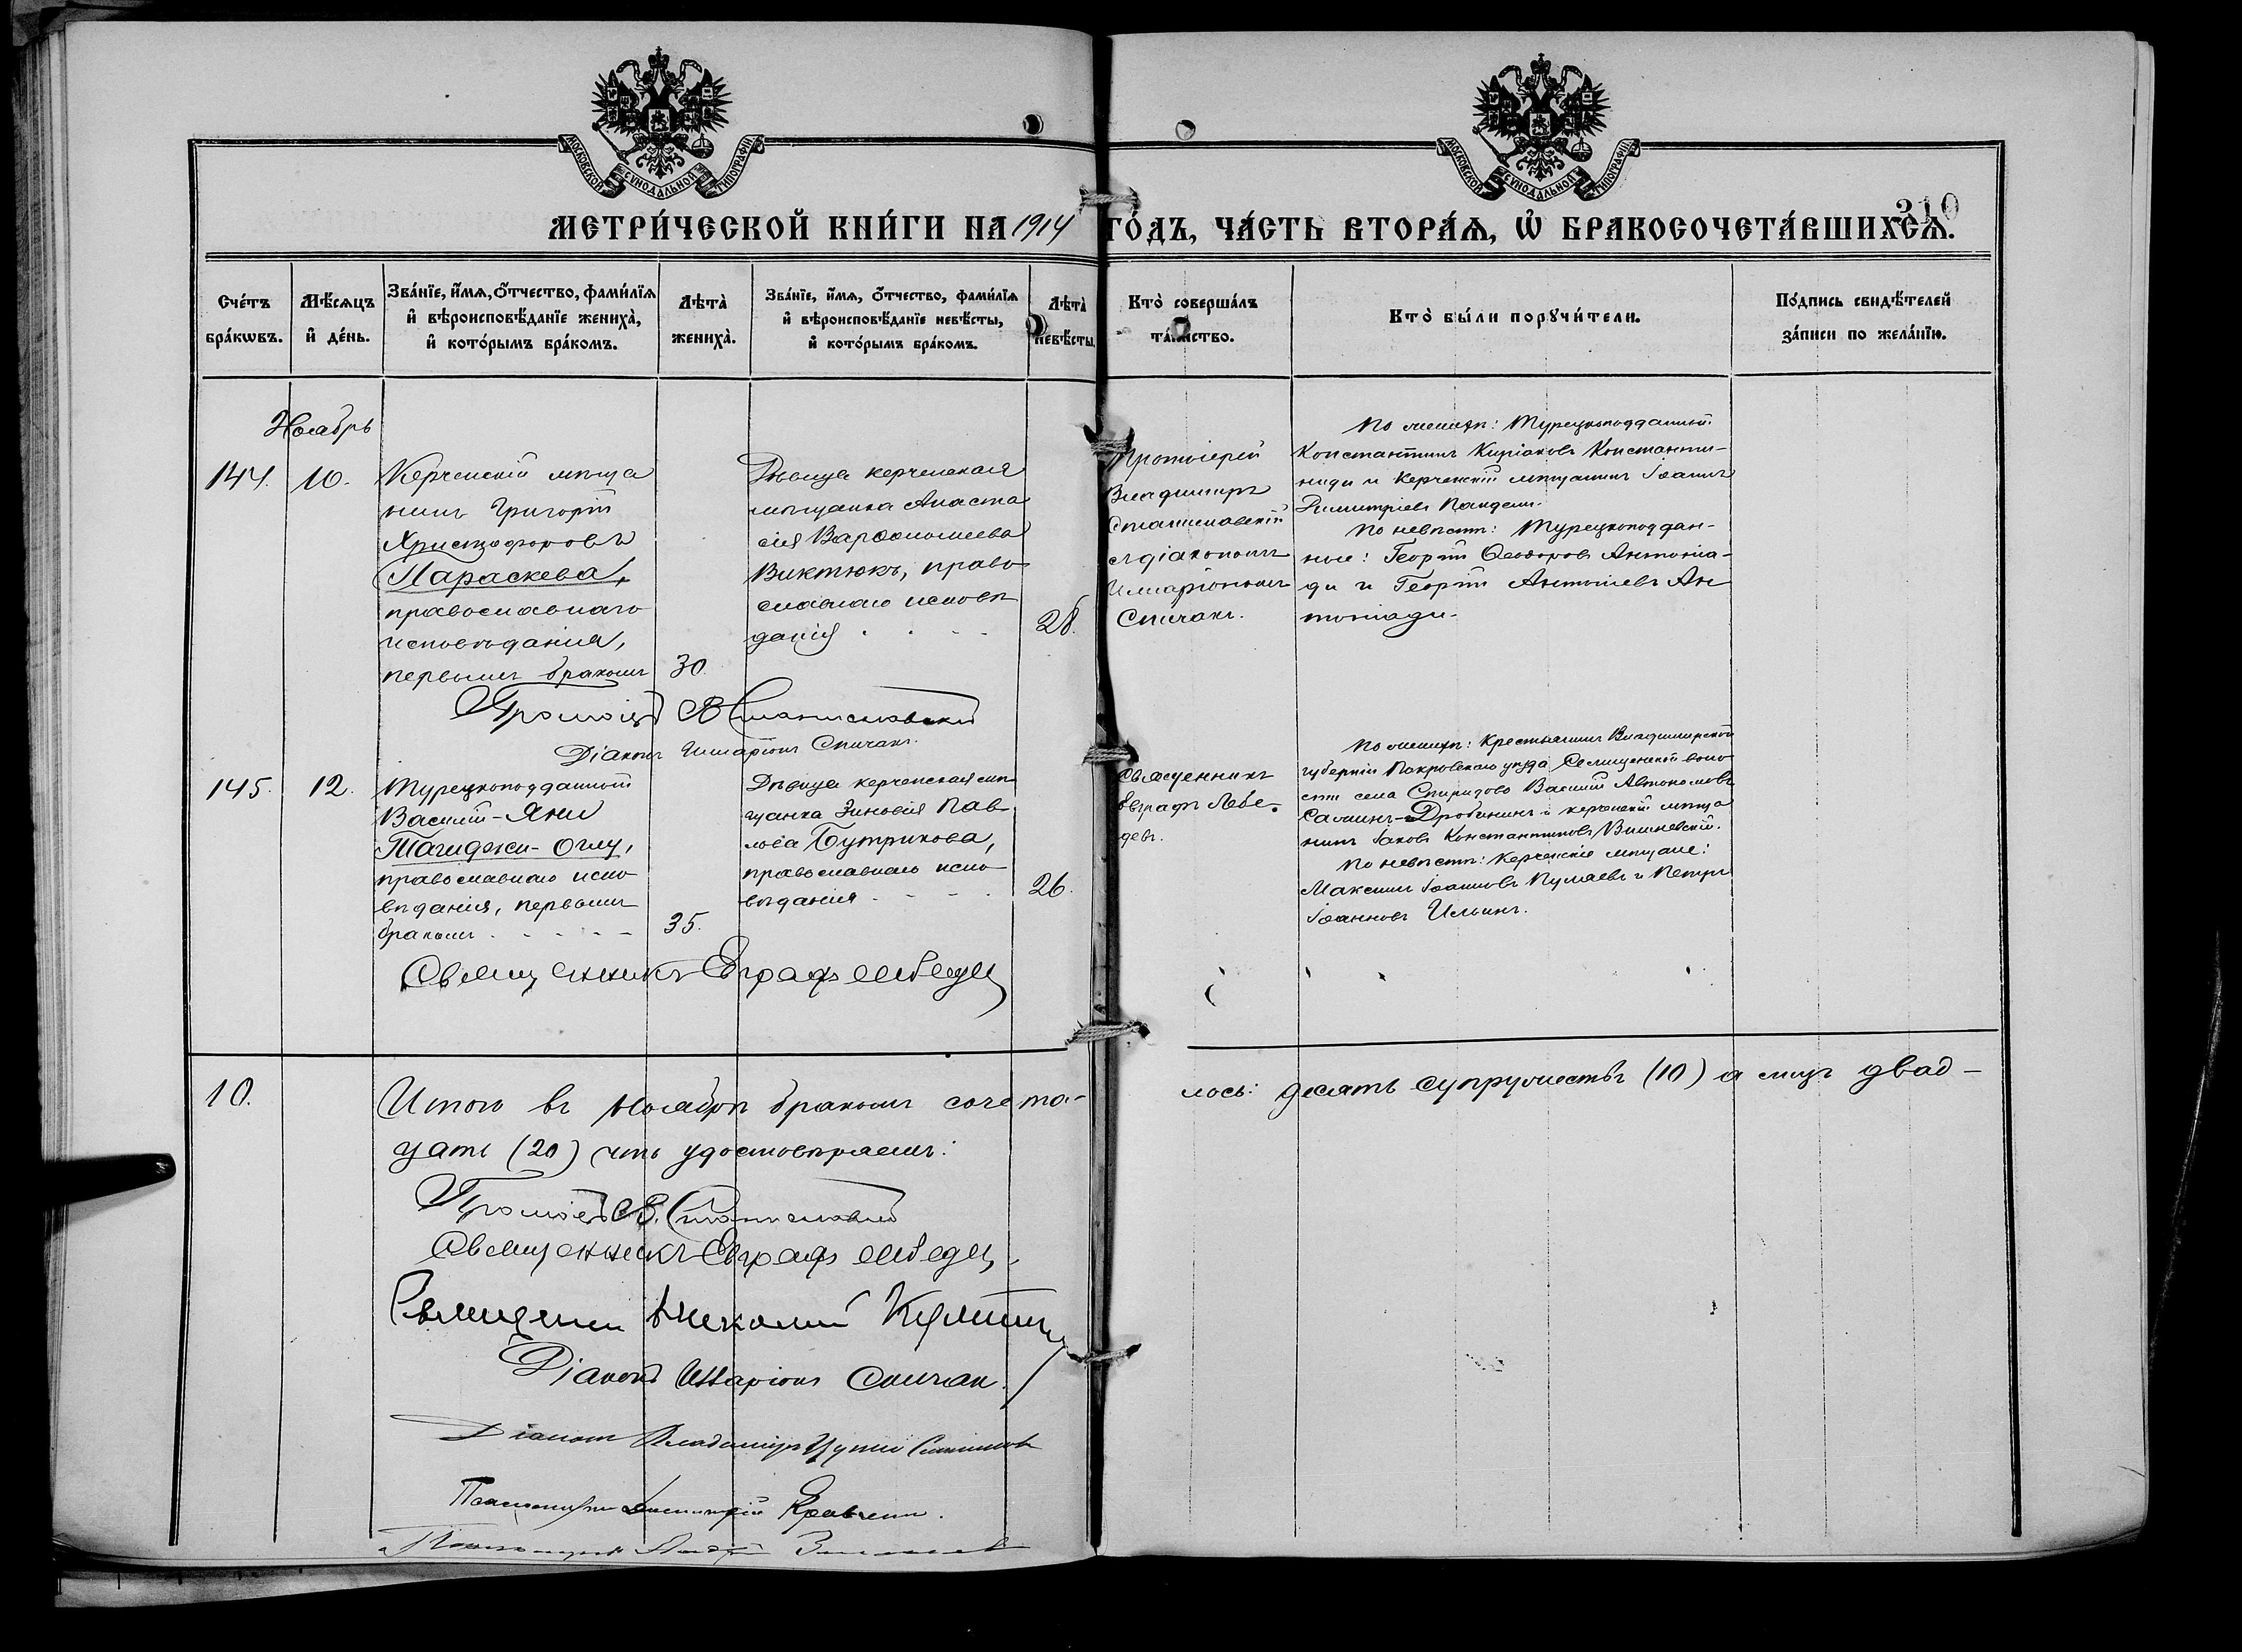 МОСКОВСКОЙ СѴНОДАЛЬНОЙ ТИПОГРАФІИ
МОСКОВСКОЙ СѴНОДАЛЬНОЙ ТИПОГРАФІИ
310
МЕТРИ́ЧЕСКОЙ КНИ́ГИ НА 1914 ГО́ДЪ, ЧА́СТЬ ВТОРА́Ѧ, Ѽ БРАКОСОЧЕТА́ВШИХСѦ.
Сче́тъ
бра́кѡвъ.
Мѣ́сѧцъ
и҆ де́нь.
Зва́нїе, и҆́мѧ, ѻ҆́тчество, фами́лїѧ
и҆ вѣроисповѣ́данїе жениха̀,
и҆ кото́рымъ бра́комъ.
Лѣта̀
жениха̀.
Зва́нїе, и҆́мѧ, ѻ҆́тчество, фами́лїѧ
и҆ вѣроисповѣ́данїе невѣ́сты,
и҆ кото́рымъ бра́комъ.
Лѣта̀
невѣ́сты.
Кто̀ соверша́лъ
та́инство.
Кто̀ бы́ли порꙋчи́тели.
По́дпись свидѣ́телей
за́писи по жела́нїю.
Ноябрь
144. 10.
Керченскій мѣща
нинъ Григорій
Христофоровъ
Параскева,
православнаго
исповѣданія,
первымъ бракомъ
30.
Дѣвица керченская
мѣщанка Анаста
сія Варѳоломеева
Виктюкъ, право
славнаго исповѣ
данія
28.
Протоіерей
Владимиръ
Станиславскій
с діакономъ
Иларіономъ
Спичакъ.
По женихѣ: Турецкоподданный
Константинъ Киріаковъ Константи-
ниди и Керченскій мѣщанинъ Іоаннъ
Димитріевъ Пандели.
По невѣстѣ: Турецкоподдан-
ные: Георгій Ѳеодоровъ Антоніа-
ди и Георгій Антоніевъ Ан
тоніади.
Протоіер В Станиславскій
Діаконъ Иларіонъ Спичакъ.
145. 12.
Турецкоподданный
Василій-Яни
Тагиджи-Оглу,
православнаго испо
вѣданія, первымъ
бракомъ
35.
Дѣвица керченская мѣ
щанка Зиновія Пав
лова Бутрикова,
православнаго испо
вѣданія
26.
Священникъ
Евграфъ Лебе
девъ.
По женихѣ: крестьянинъ Владимирской
губерніи Покровскаго уѣзда Селищенской воло
сти села Спиридово Василій Автономовъ
Салминъ-Дробинин и керченскій мѣща
нинъ Іаковъ Константиновъ Вишневскій.
По невѣстѣ: Керченскіе мѣщане:
Максимъ Іоанновъ Пуляевъ и Петръ
Іоанновъ Ильинъ.
Священникъ Евграфъ Лебедев
10.
Итого въ Ноябрѣ бракомъ сочета-
лось: десять супружествъ (10) а лицъ двад-
цать (20) что удостовѣряемъ:
Протоіер В. Станиславскій
Священникъ Евграфъ Лебедев
Священникъ Николай
Діаконъ Иларіонъ Спичак
Діаконъ Владимиръ
Псаломщикъ Димитрій Кравченко.
Псаломщикъ